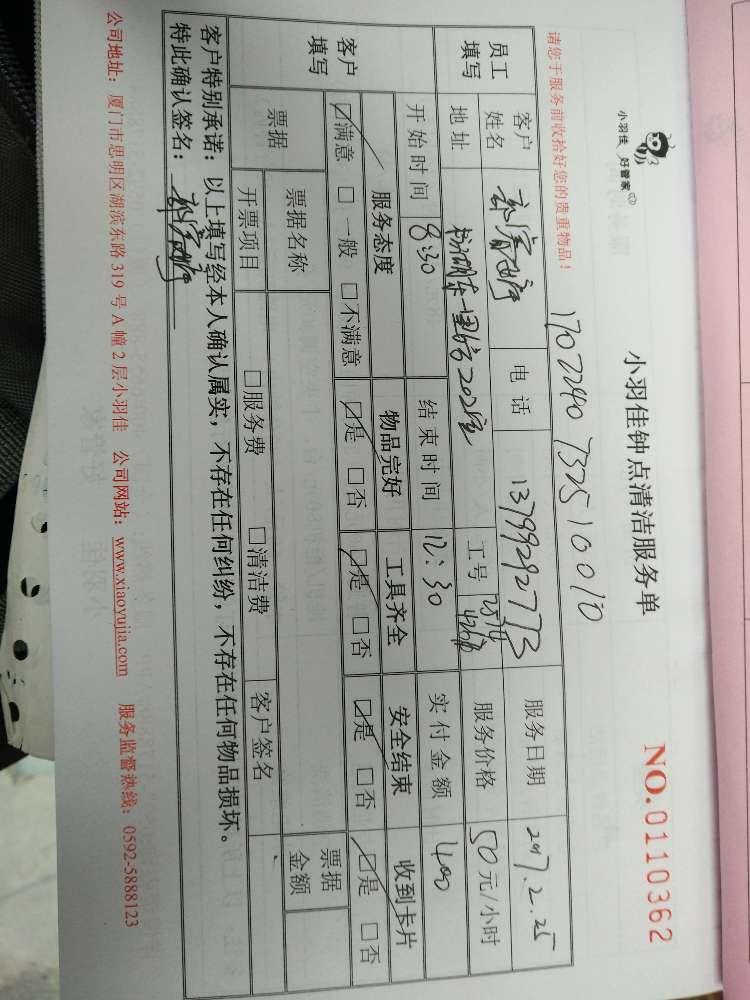 小羽佳 好管家
小羽佳钟点清洁服务单
NO.0110362
1702240732510010
请您于服务前收拾好您的贵重物品！
员工填写
客户姓名
电话 13799292773
服务日期 2017.2.25
地址
工号
服务价格 50元/小时
客户填写
开始时间 8:30
结束时间 12:30
实付金额 400
服务态度 物品完好 工具齐全 安全结束 收到卡片
☑满意 □一般 □不满意 ☑是 □否 ☑是 □否 ☑是 □否 ☑是 □否
票据
票据名称
票据金额
开票项目 □服务费 □清洁费 客户签名
客户特别承诺：以上填写经本人确认属实，不存在任何纠纷，不存在任何物品损坏。
特此确认签名：
公司地址：厦门市思明区湖滨东路319号A幢2层小羽佳 公司网站：www.xiaoyujia.com 服务监督热线：0592-5888123